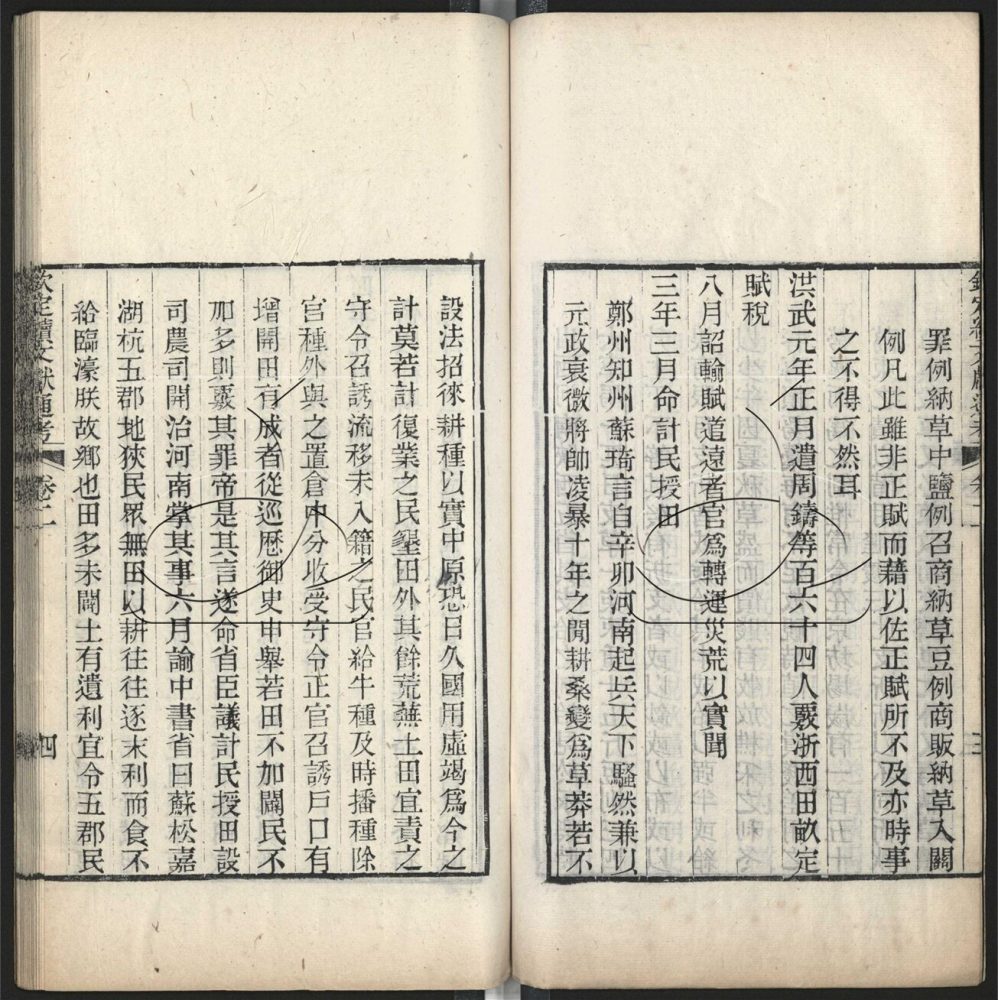 罪例納草中鹽例召商納草豆例商販納草入關
例凡此雖非正賦而藉以佐正賦所不及亦時事
之不得不然耳
洪武元年正月遣周鑄等百六十四人覈浙西田畝定
賦稅
八月詔輸賦道遠者官為轉運災荒以實聞
三年三月命計民授田
鄭州知州蘇琦言自辛卯河南起兵天下騷然兼以
元政衰微將帥凌暴十年之閒耕桑變為草莽若不
設法招徠耕種以實中原恐日久國用虛竭為今之
計莫若計復業之民墾田外其餘荒蕪土田宜責之
守令召誘流移未入籍之民官給牛種及時播種除
官種外與之置倉中分收受守令正官召誘戶口有
增開田有成者從巡歷御史申舉若田不加闢民不
加多則覈其罪帝是其言遂命省臣議計民授田設
司農司開治河南掌其事六月諭中書省曰蘇松嘉
湖杭五郡地狹民眾無田以耕往往逐末利而食不
給臨濠朕故鄉也田多未闢土有遺利宜令五郡民
欽定續文獻通考 卷二 四